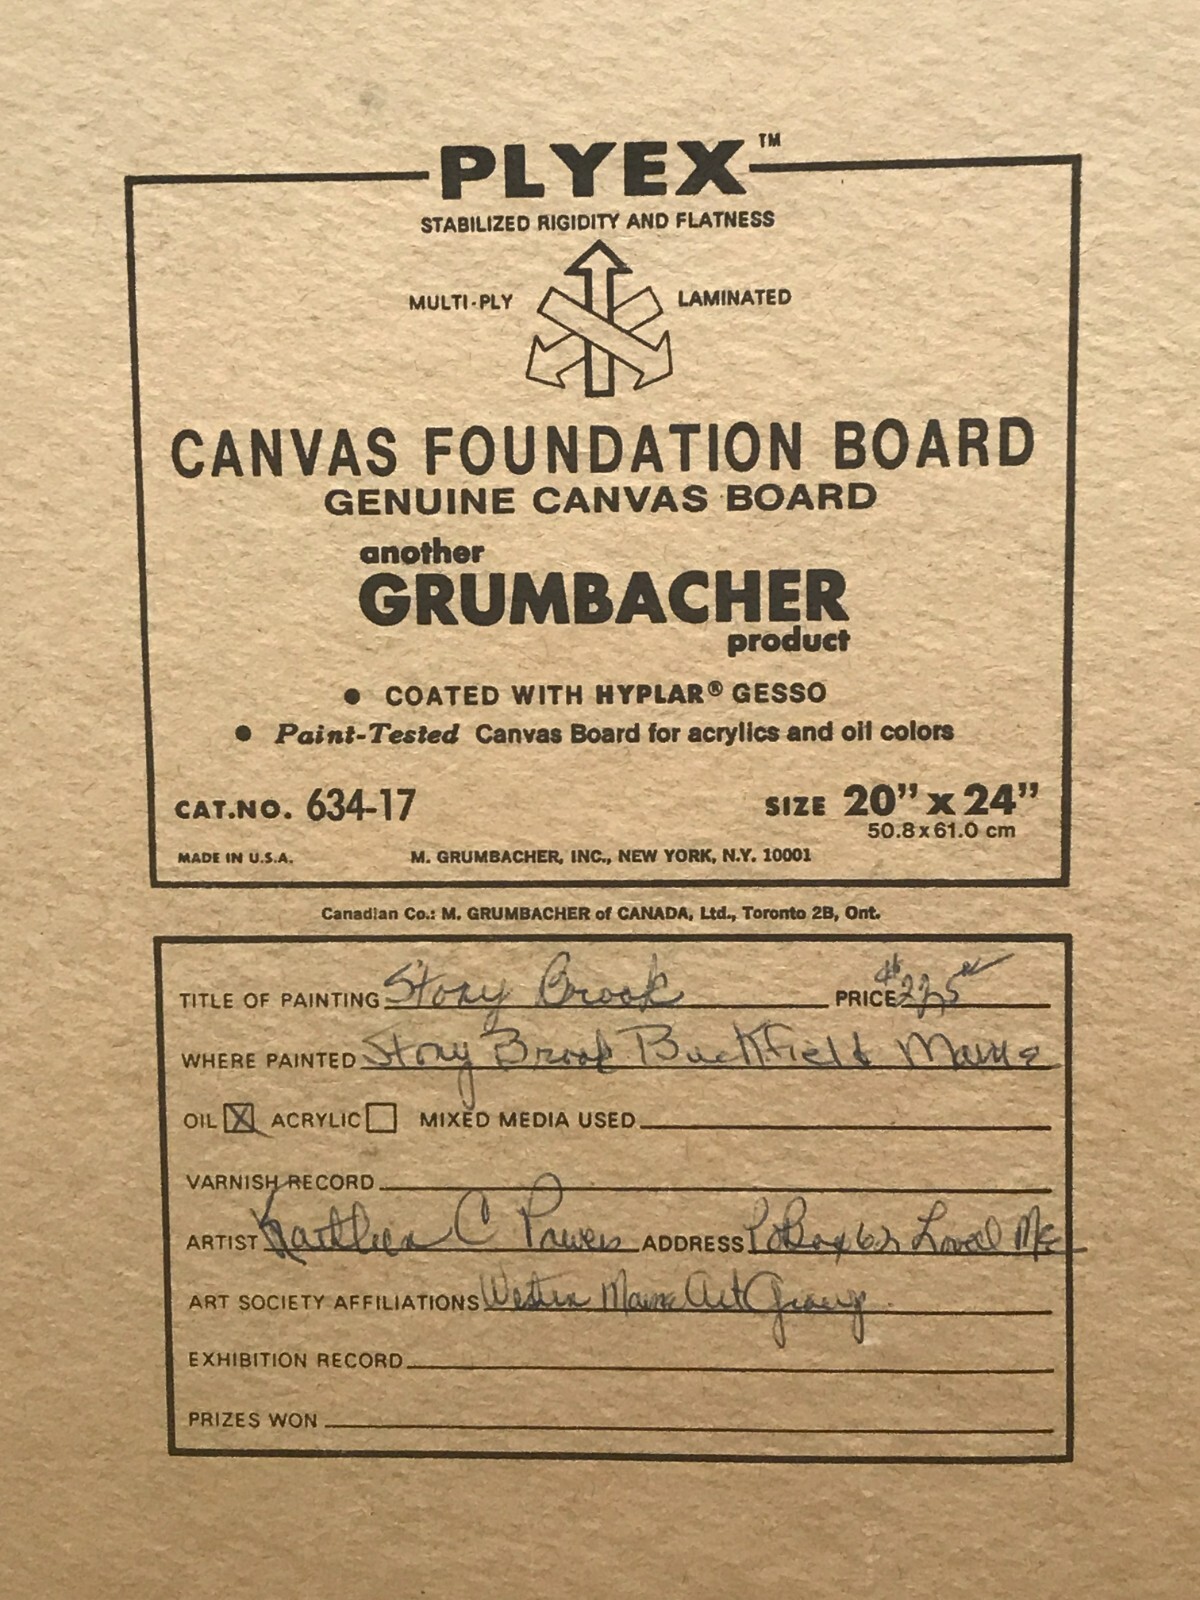 PLYEX™
STABILIZED RIGIDITY AND FLATNESS
MULTI-PLY LAMINATED
CANVAS FOUNDATION BOARD
GENUINE CANVAS BOARD
another
GRUMBACHER
product
• COATED WITH HYPLAR® GESSO
• Paint-Tested Canvas Board for acrylics and oil colors
CAT.NO. 634-17 SIZE 20" x 24"
50.8 x 61.0 cm
MADE IN U.S.A. M. GRUMBACHER, INC., NEW YORK, N.Y. 10001
Canadian Co.: M. GRUMBACHER of CANADA, Ltd., Toronto 2B, Ont.
TITLE OF PAINTING Stony Brook PRICE $225
WHERE PAINTED Stony Brook Buckfield Maine
OIL X ACRYLIC MIXED MEDIA USED
VARNISH RECORD
ARTIST Kathleen C Powers ADDRESS PO Box 62 Lovell Me
ART SOCIETY AFFILIATIONS Western Maine Art Group
EXHIBITION RECORD
PRIZES WON